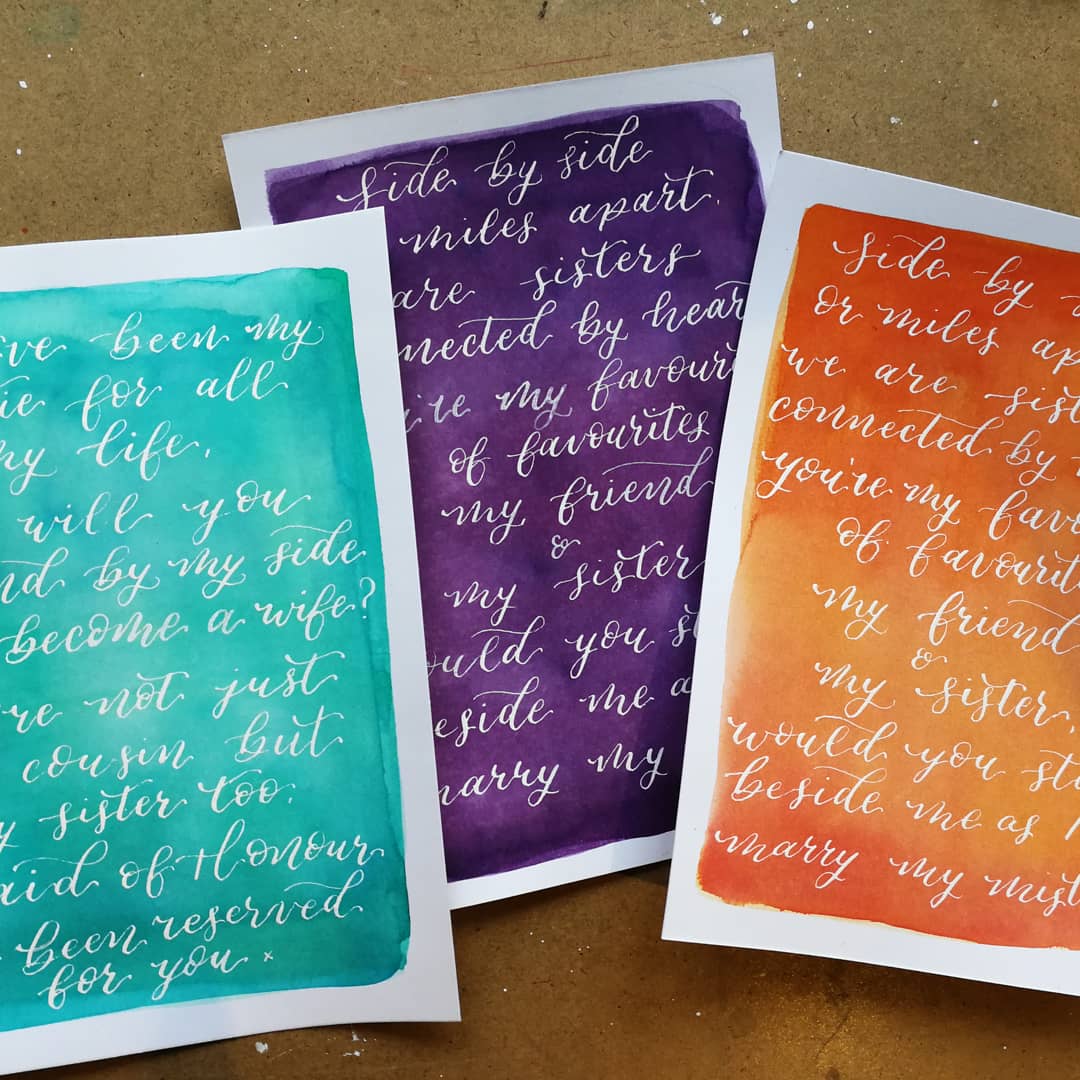 've been my
ie for all
my life,
will you
nd by my side
become a wife?
're not just
cousin but
y sister too,
aid of Honour
been reserved
for you x
side by side
miles apart,
are sisters
nected by hear
're my favouri
of favourites
my friend
&
my sister
ould you st
eside me a
marry my
side by s
or miles ap
we are sist
connected by
you're my favo
of favourit
my friend
&
my sister,
would you sta
beside me as
marry my mist